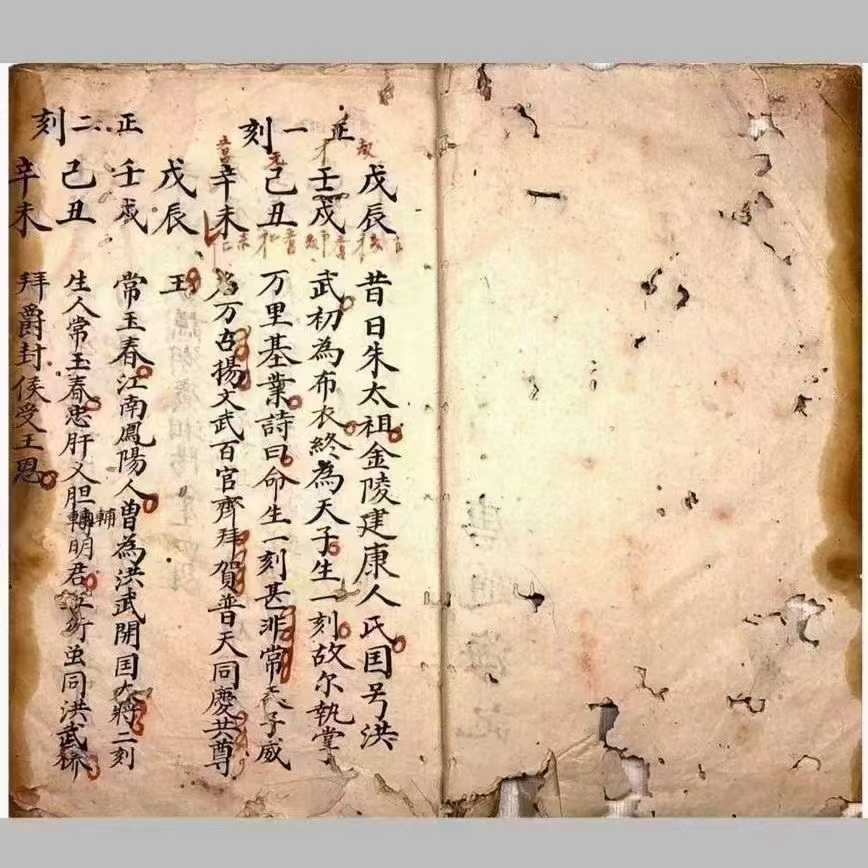 正一刻
戊辰 昔日朱太祖金陵建康人氏囯号洪
壬戍 武初為布衣終為天子生一刻故尔執掌
己丑 万里基業詩曰命生一刻甚非常天子威
辛未 名万古揚文武百官齊拜賀普天同慶共尊
戊辰 王
正二刻
壬戍 常玉春江南鳳陽人曽為洪武開囯大將二刻
己丑 生人常玉春忠肝义胆轉輔明君 術虽同洪武
辛未 拜爵封侯受王恩